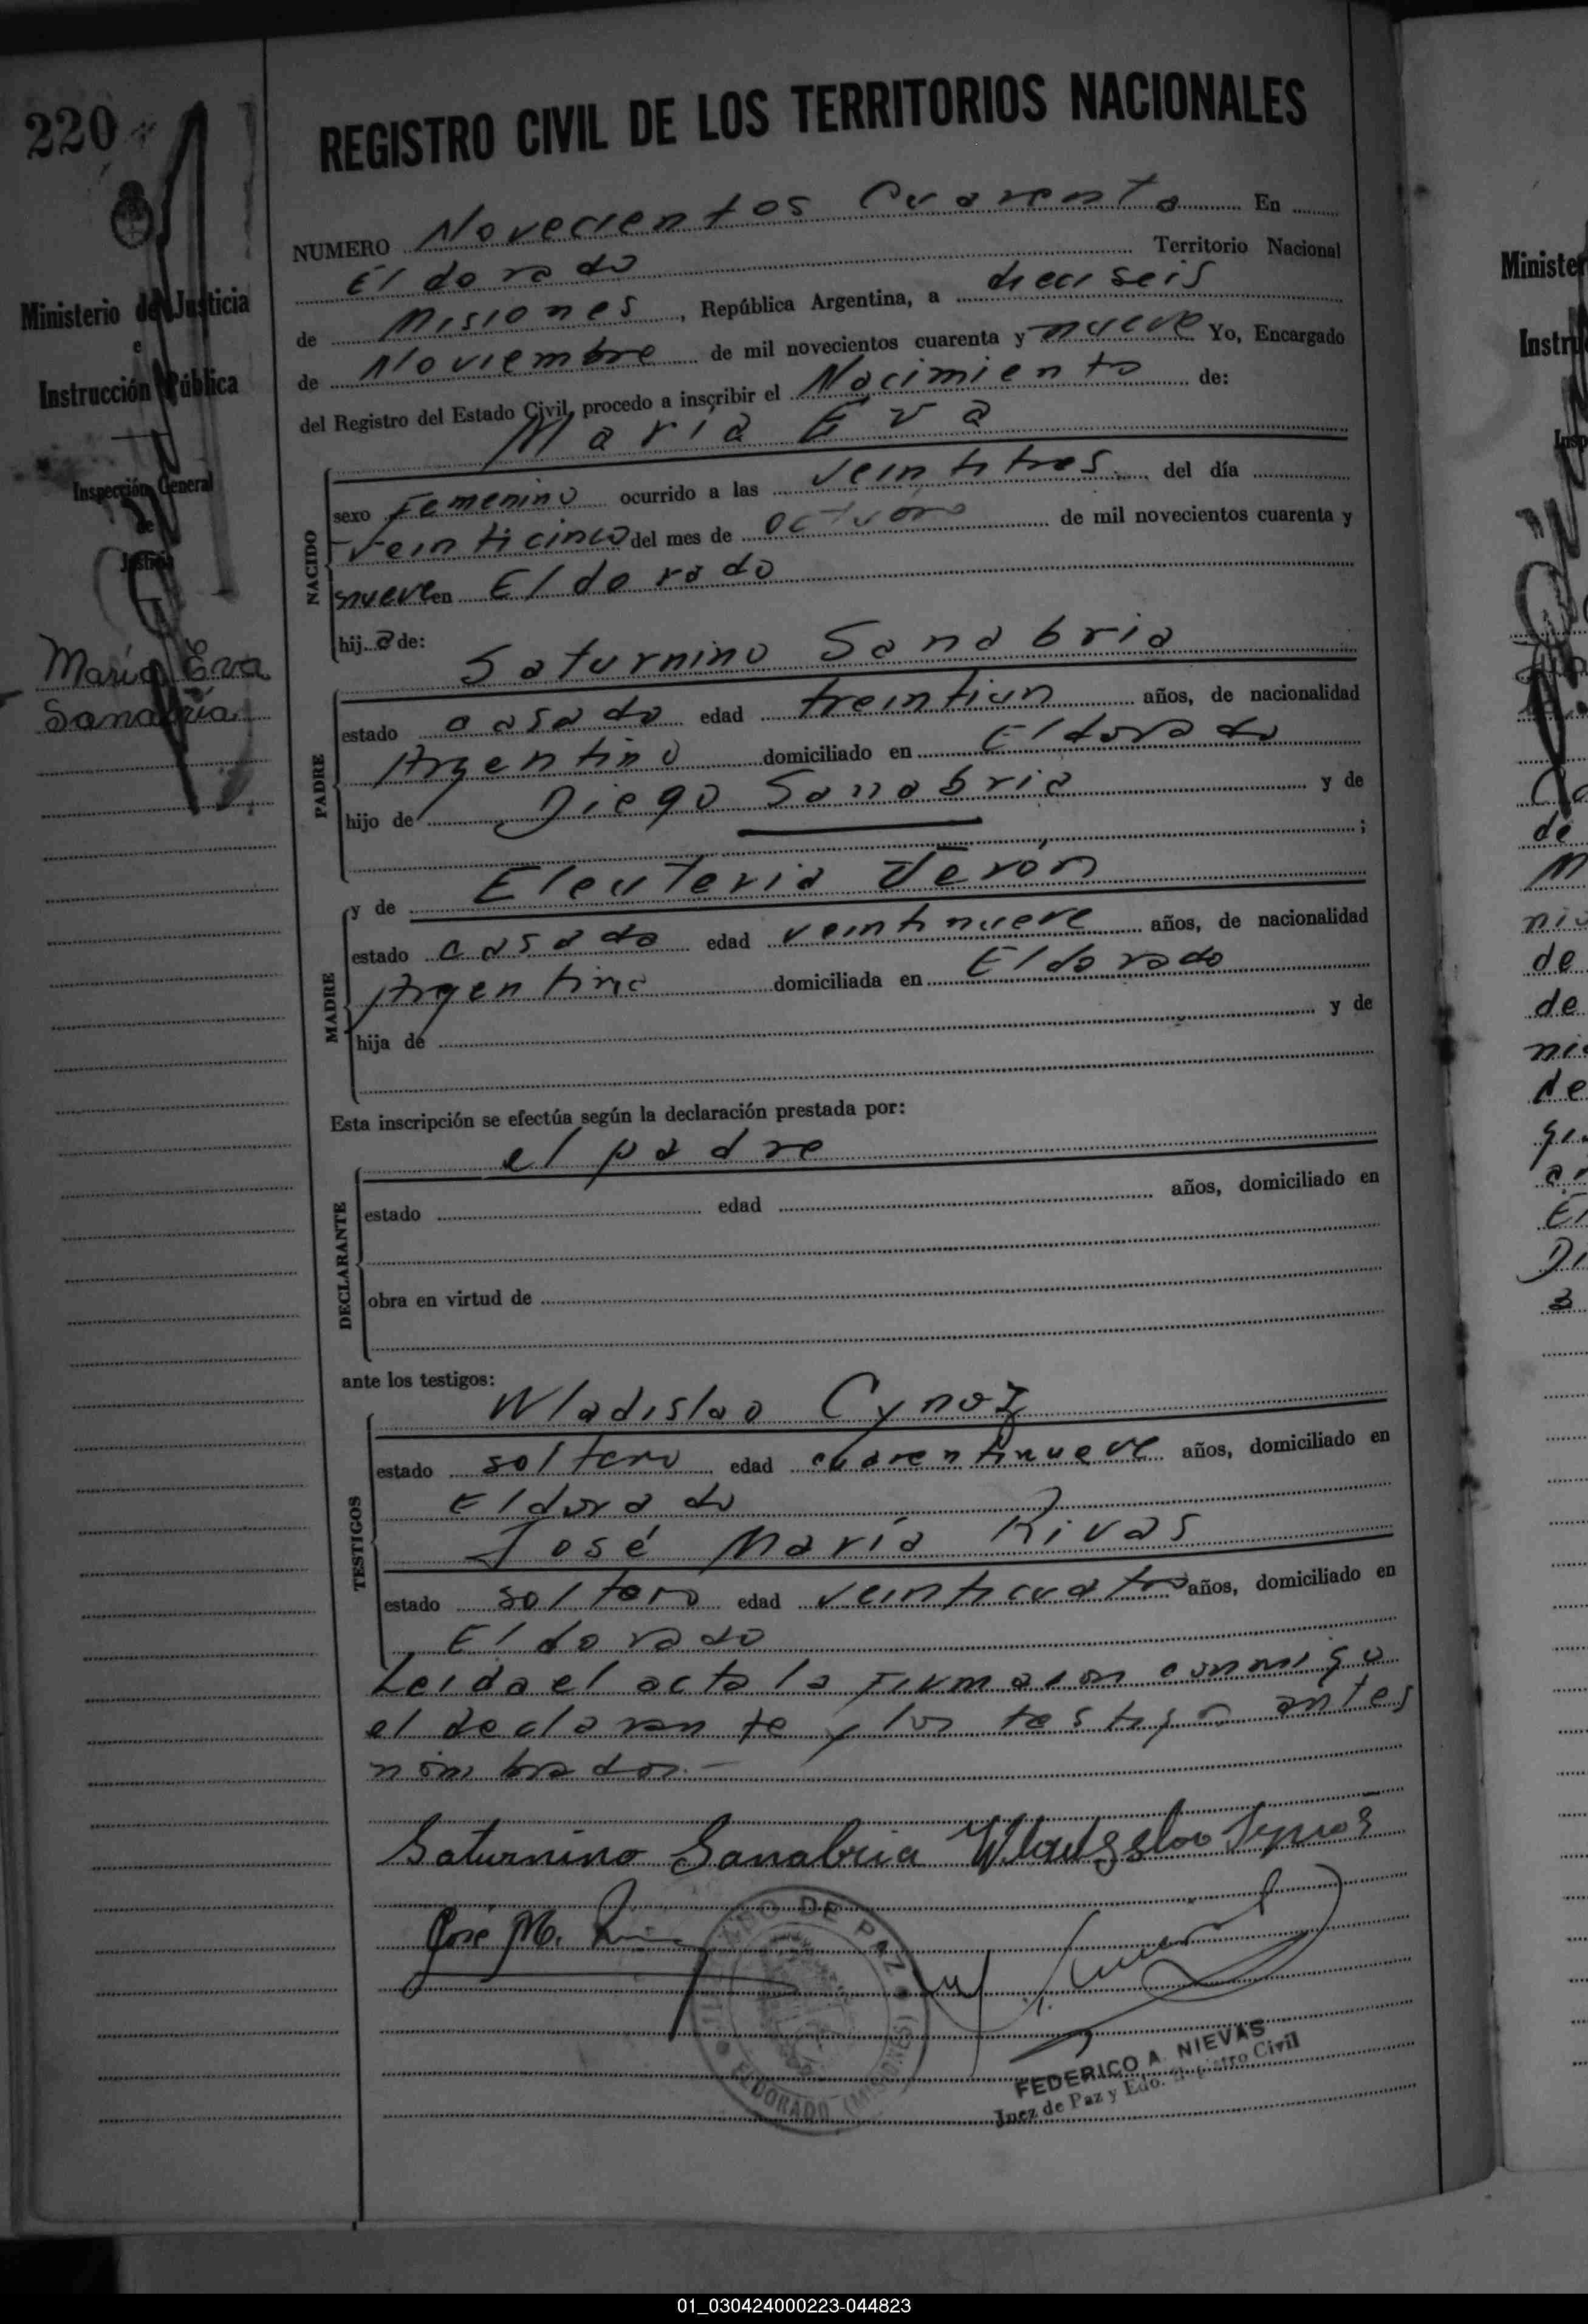 220
REGISTRO CIVIL DE LOS TERRITORIOS NACIONALES
Ministerio de Justicia
e
Instrucción Pública
Inspección General
de
Justicia
María Eva
Sanabria
NUMERO Novecientos Cuarenta En
Eldorado Territorio Nacional
de Misiones, República Argentina, a dieciseis
de Noviembre de mil novecientos cuarenta y nueve Yo, Encargado
del Registro del Estado Civil, procedo a inscribir el Nacimiento de:
María Eva
NACIDO
sexo Femenino ocurrido a las veintitres del día
veinticinco del mes de octubre de mil novecientos cuarenta y
nueve en Eldorado
hija de:
Saturnino Sanabria
PADRE
estado casado edad treintiun años, de nacionalidad
Argentino domiciliado en Eldorado
hijo de Diego Sanabria y de
;
y de Eleuteria Verón
MADRE
estado casada edad veintinueve años, de nacionalidad
Argentina domiciliada en Eldorado
hija de y de
Esta inscripción se efectúa según la declaración prestada por:
el padre
DECLARANTE
estado edad años, domiciliado en
obra en virtud de
ante los testigos:
Wladislao Cynoz
TESTIGOS
estado soltero edad cuarentinueve años, domiciliado en
Eldorado
José María Rivas
estado soltero edad veinticuatro años, domiciliado en
Eldorado
Leída el acta la firmaron conmigo
el declarante y los testigos antes
nombrados.-
Saturnino Sanabria
José M.
JUZGADO DE PAZ
ELDORADO (MISIONES)
FEDERICO A. NIEVAS
Juez de Paz y Edo. Registro Civil
01_030424000223-044823